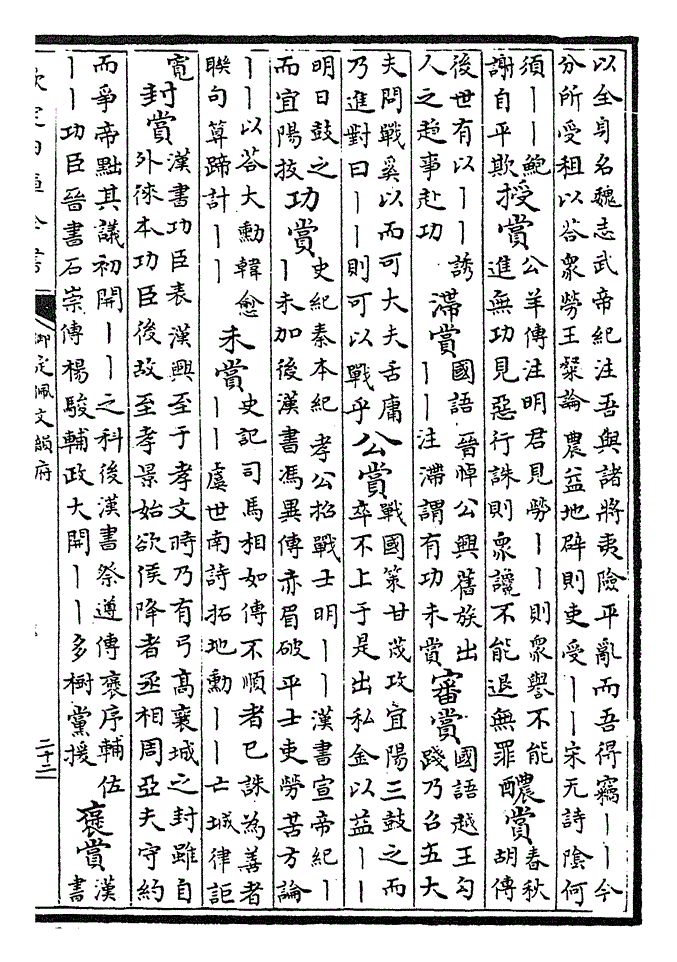 以全身名魏志武帝紀注吾與諸將夷險平亂而吾得竊丨丨今分所受租以荅衆勞王粲論農益地辟則吏受丨丨宋无詩陰何
須丨丨鮑謝自平欺授賞公羊傳注明君見勞丨丨則衆譽不能進無功見惡行誅則衆讒不能退無罪醲賞春秋胡傳
後世有以丨丨誘人之趨事赴功滯賞國語晉悼公興舊族出丨丨注滯謂有功未賞審賞國語越王勾踐乃召五大
夫問戰奚以而可大夫舌庸乃進對曰丨丨則可以戰乎公賞戰國策甘茂攻宜陽三鼓之而卒不上于是出私金以益丨丨
明日鼓之而宜陽拔功賞史紀秦本紀孝公招戰士明丨丨漢書宣帝紀丨丨未加後漢書馮異傳赤眉破平士吏勞苦方論
丨丨以荅大勳韓愈聯句算蹄計丨丨未賞史記司馬相如傳不順者已誅為善者丨丨虞世南詩拓地勳丨丨亡城律詎
寛封賞漢書功臣表漢興至于孝文時乃有弓高襄城之封雖自外徠本功臣後故至孝景始欲侯降者丞相周亞夫守約
而爭帝黜其議初開丨丨之科後漢書祭遵傳襃序輔佐丨丨功臣晉書石崇傳楊駿輔政大開丨丨多樹黨援襃賞漢書
欽定四庫全書
御定佩文韻府
二十二